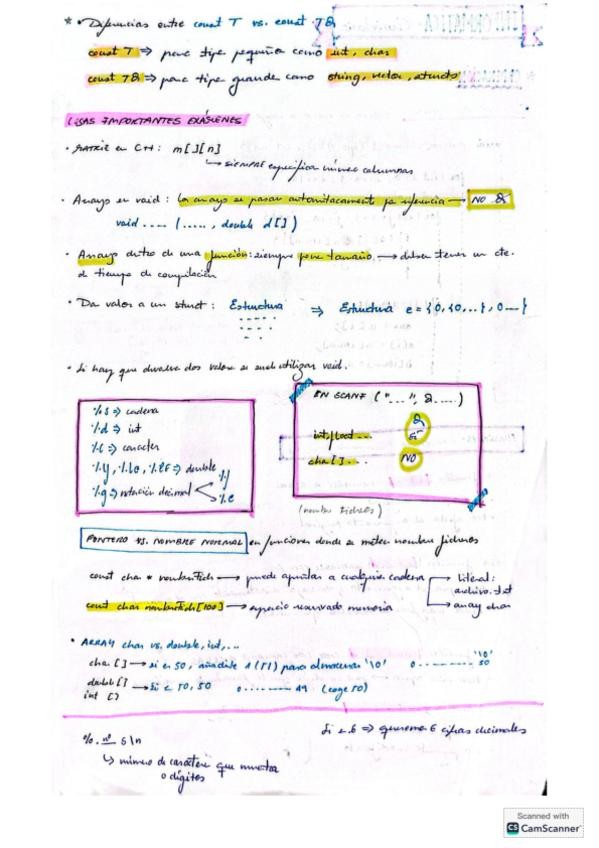 ** Diferencias entre const T vs. const T&
const T => para tipo pequeños como int, char
const T& => para tipo grande como string, vector, structs
COSAS IMPORTANTES EXÁMENES
· MATRIZ en C++: m[ ][n]
↳ SIEMPRE especificar número columnas
· Arrays en void: los arrays se pasan automáticament por referencia → NO &
void ..... (....., double d[])
· Arrays dentro de una función: siempre poner tamaño → deben tener un cte.
de tiempo de compilación
· Dar valor a un struct: Estructura => Estructura e = {0, {0,...}, 0...}
· Si hay que devolver dos valores se suele utilizar void.
%s => cadena
%d => int
%c => caracter
%f, %lo, %lf => double
%g => notación decimal
%f
%e
EN SCANF ("...", &....)
int, float...
& SI
char[]...
NO
(nombre ficheros)
PUNTERO VS. NOMBRE NORMAL en funciones donde se meten nombre ficheros
const char * nombrefich → puede apuntar a cualquier cadena
literal:
archivo.txt
array char
const char nombrefich[100] → espacio reservado memoria
· ARRAY char vs. double, int,...
char[] → si es 50, añadirle 1 (51) para almacenar '\0'
0 .......... 50
'\0'
double[]
int []
→ Si es 50, 50
0 ......... 49
(coge 50)
%. nº 6\n
↳ número de carácter que muestra
o dígitos
Si es 6 => queremos 6 cifras decimales
Scanned with
CS CamScanner